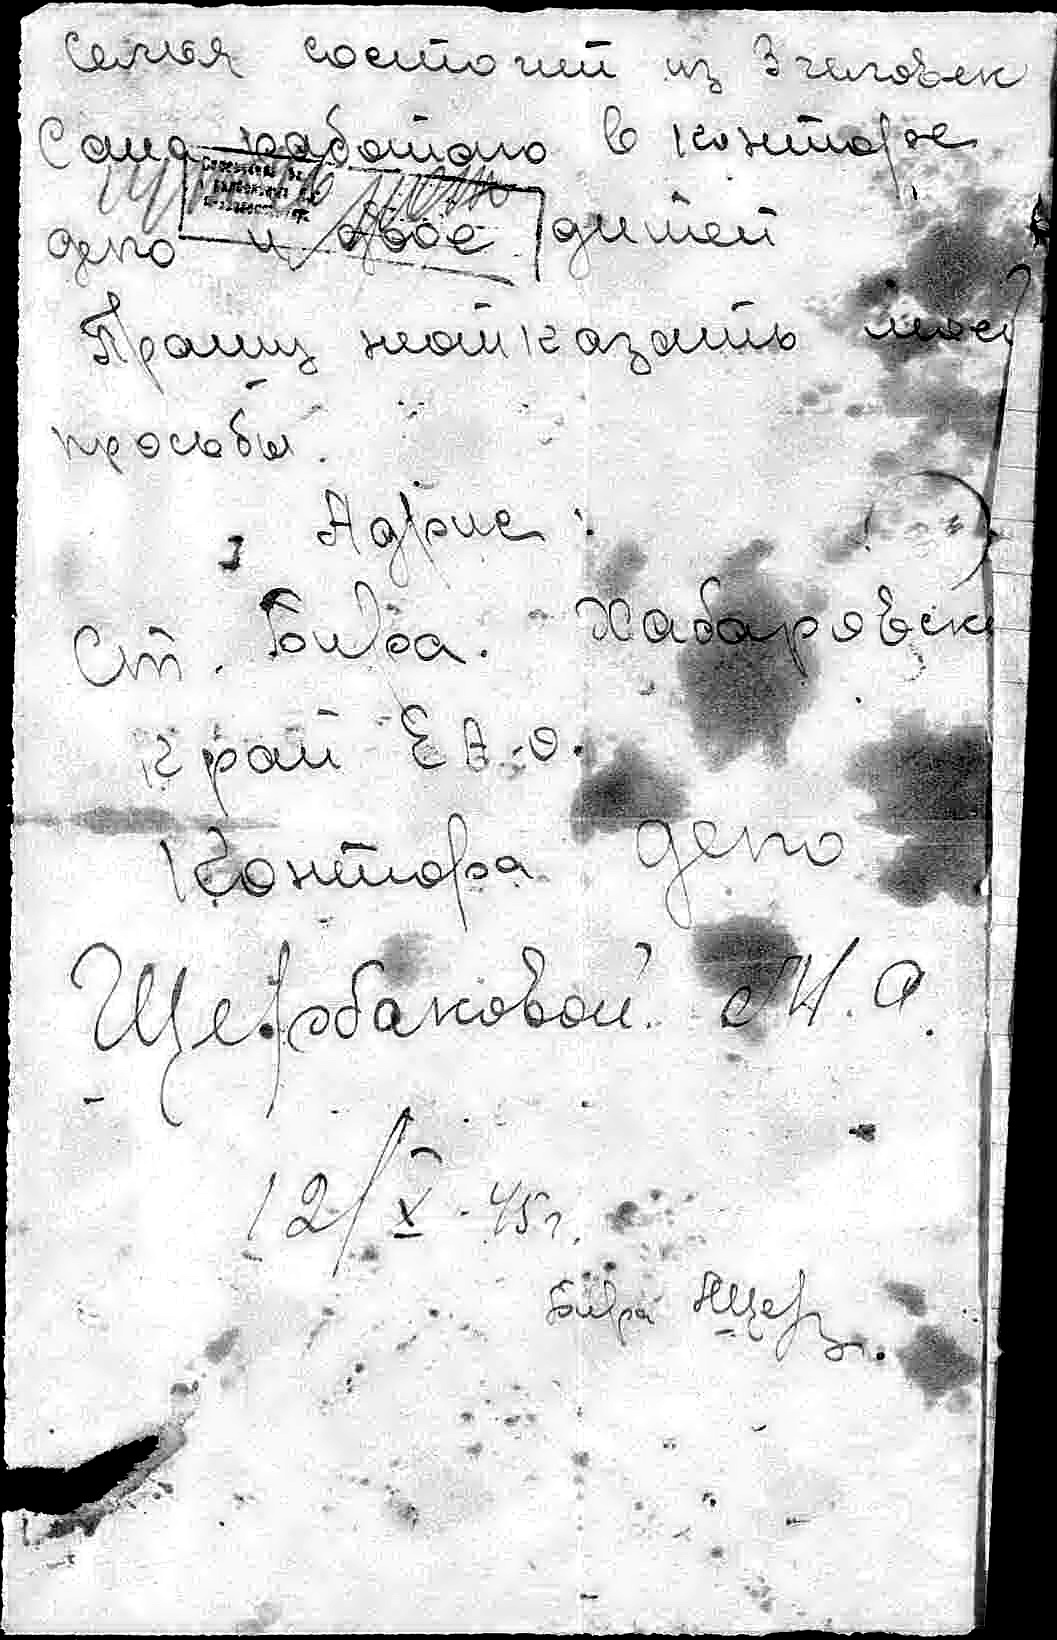 Семья состоит из 3 человек
Сама работаю в конторе
депо и двое дитей
Прашу неоткказать моей
просьбы.
Адрис:
Ст. Бира. Хабаровск
край Е А.О.
Контора депо
Щербаковой М. А.
12/X-45г.
Бира